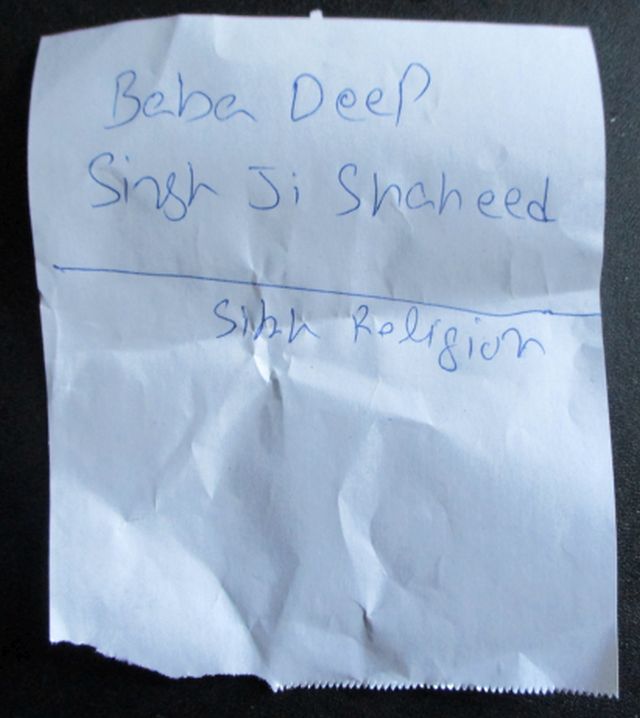 Baba Deep
Singh Ji Shaheed
Sikh Religion